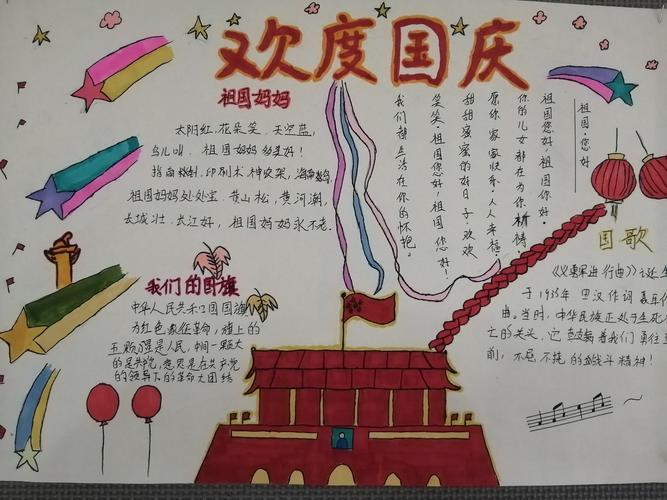 欢度国庆
祖国妈妈
太阳红,花朵笑,天空蓝,
鸟儿叫,祖国妈妈多美好!
指南针,印刷术
祖国妈妈处处宝.黄山松,黄河潮,
长城壮.长江好,祖国妈妈永不老.
我们的国旗
中华人民共和国国旗
为红色,象征革命,旗上的
五颗星是人民,中间一颗大
的是共产党,意思是在共产党
的领导下的革命大团结
祖国·您好
祖国您好,祖国你好.
你的儿女都在为你祈祷.
愿你家家快乐,人人幸福.
甜甜蜜蜜的好日子,欢欢
笑笑.祖国您好,祖国您好!
我们都生活在你的怀抱。
国歌
《义勇军进行曲》
于1935年田汉作词聂耳作
曲。当时,中华民族正处于生死存
亡的关头,它鼓舞着我们勇往直
前,不屈不挠的战斗精神!